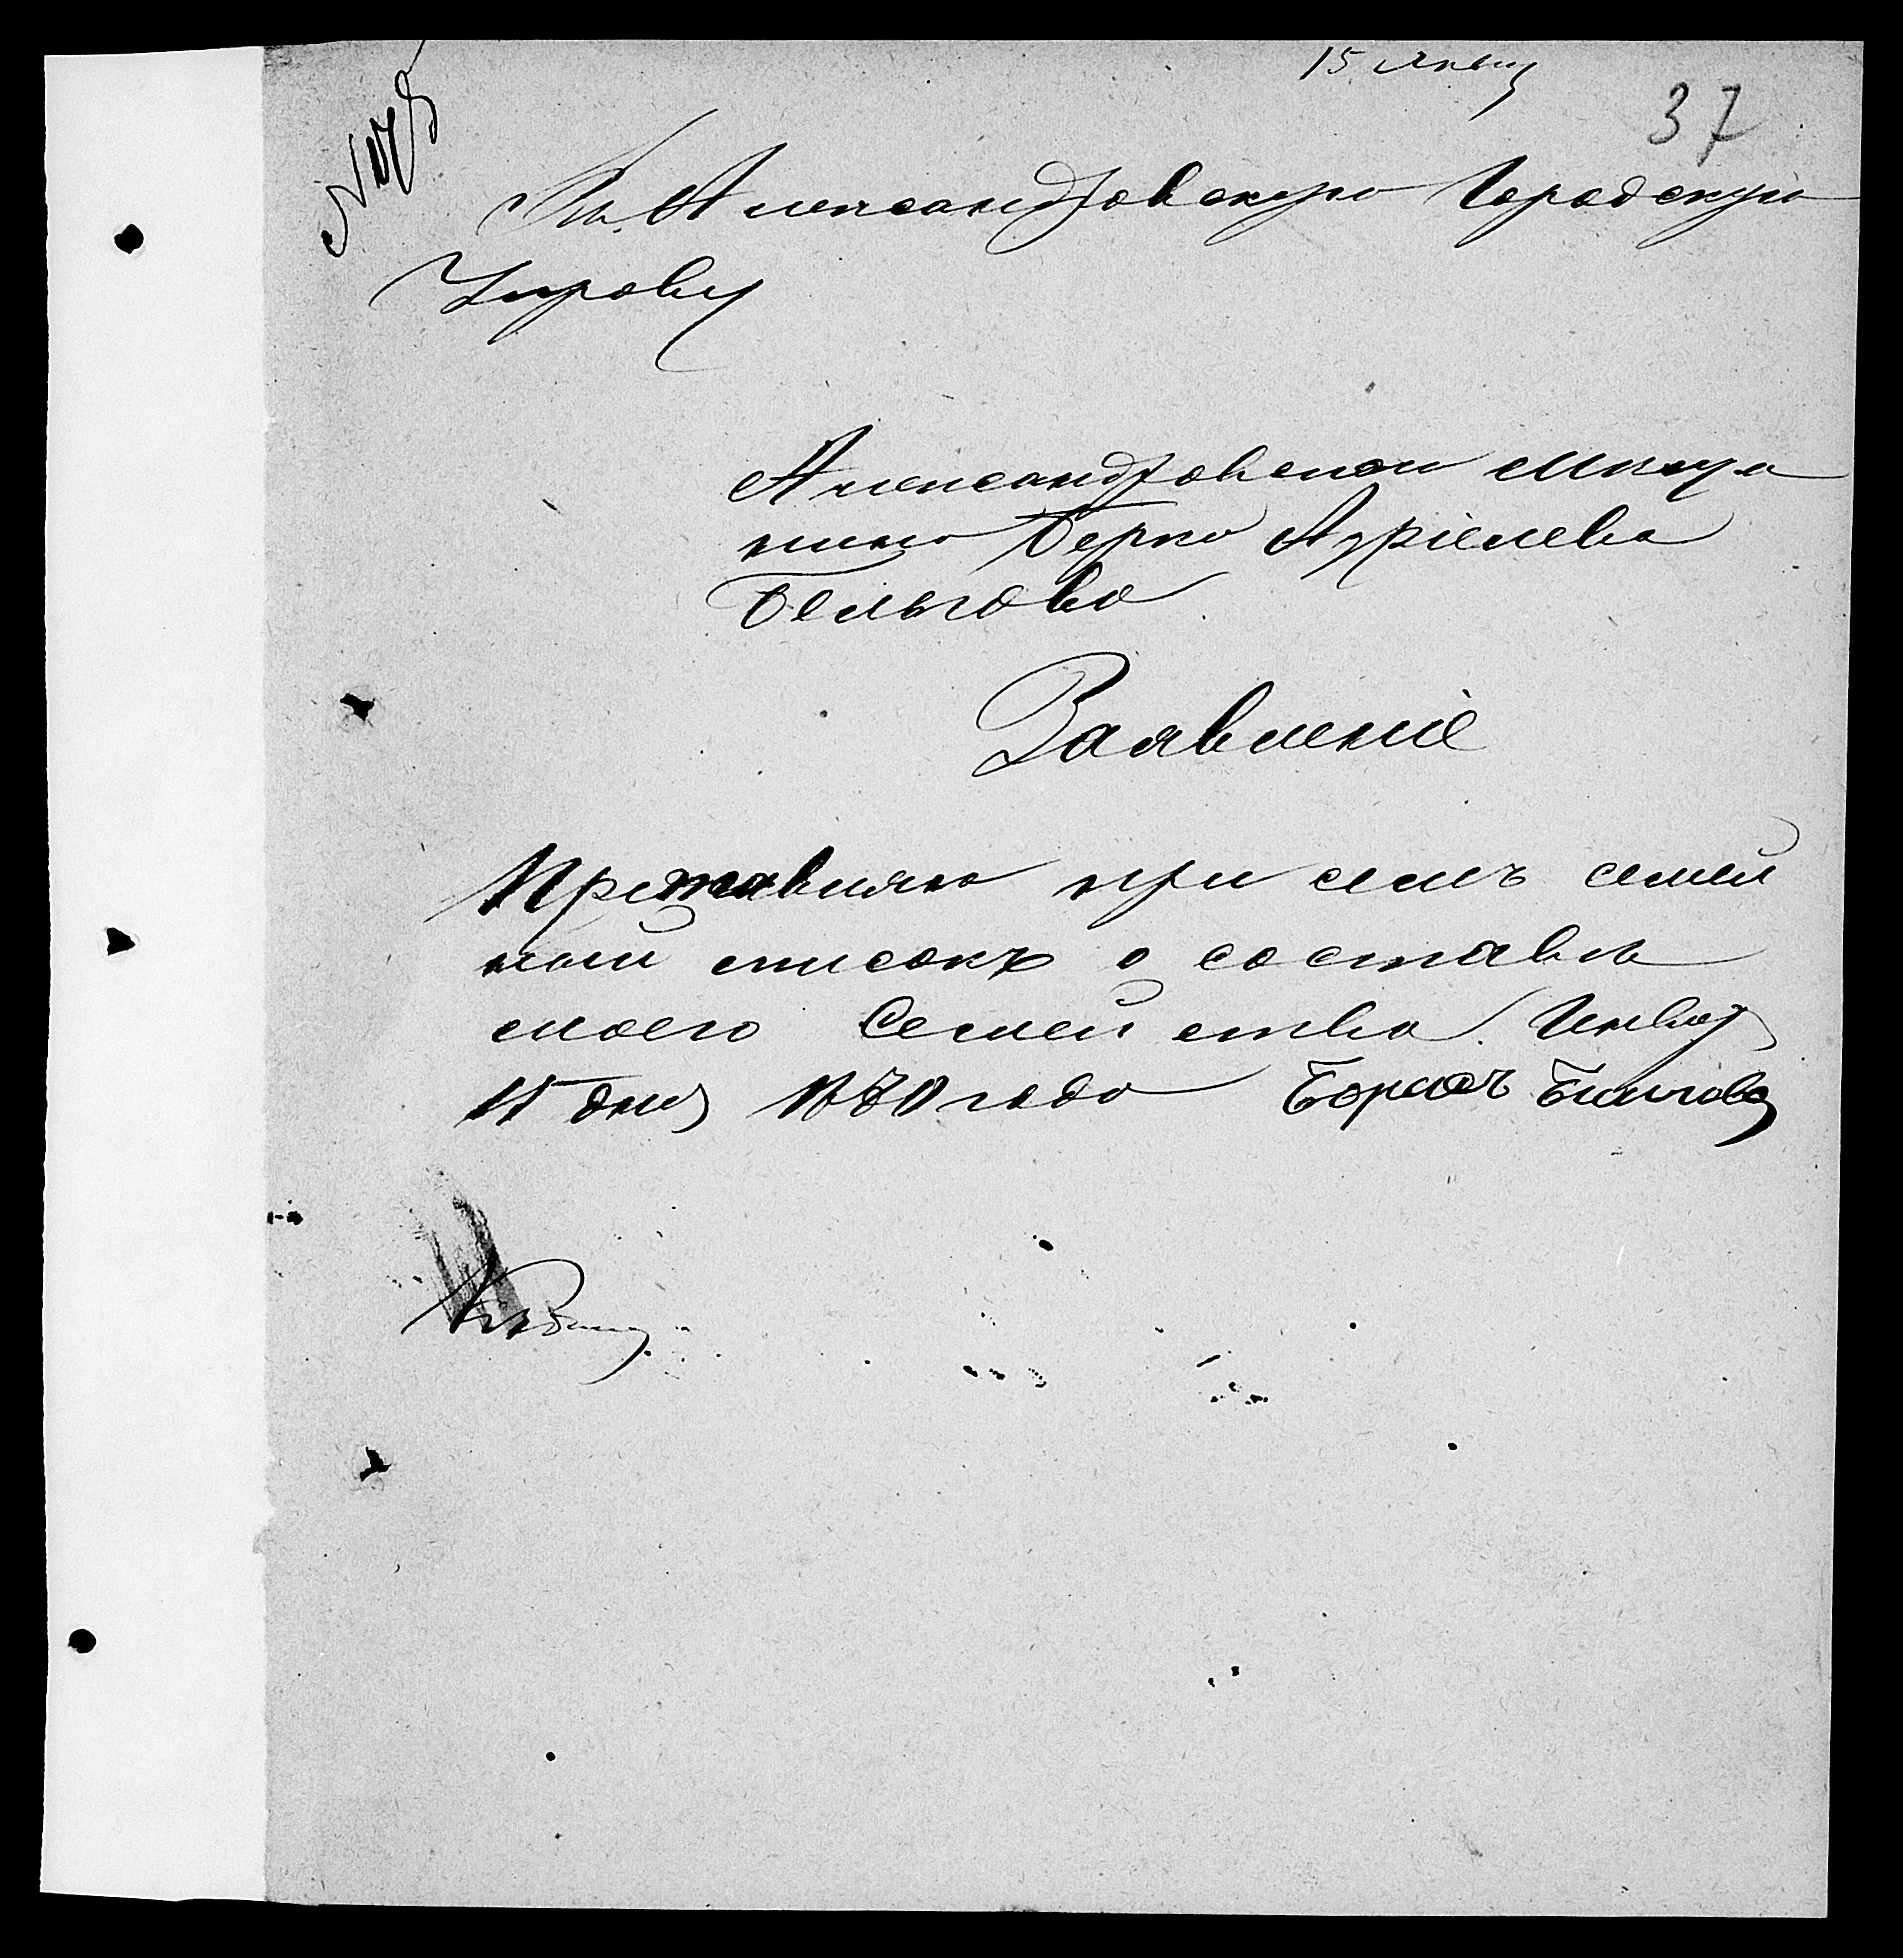 15 Январ
37
Въ Александровскую Городскую
Управу
Александровскаго Мѣща
нина Берко Азріелева
Бельгова
Заявленіе
Представляю при семъ семей
ный списокъ о составѣ
моего Семейства. Январ
15 дня 18 года Борисъ